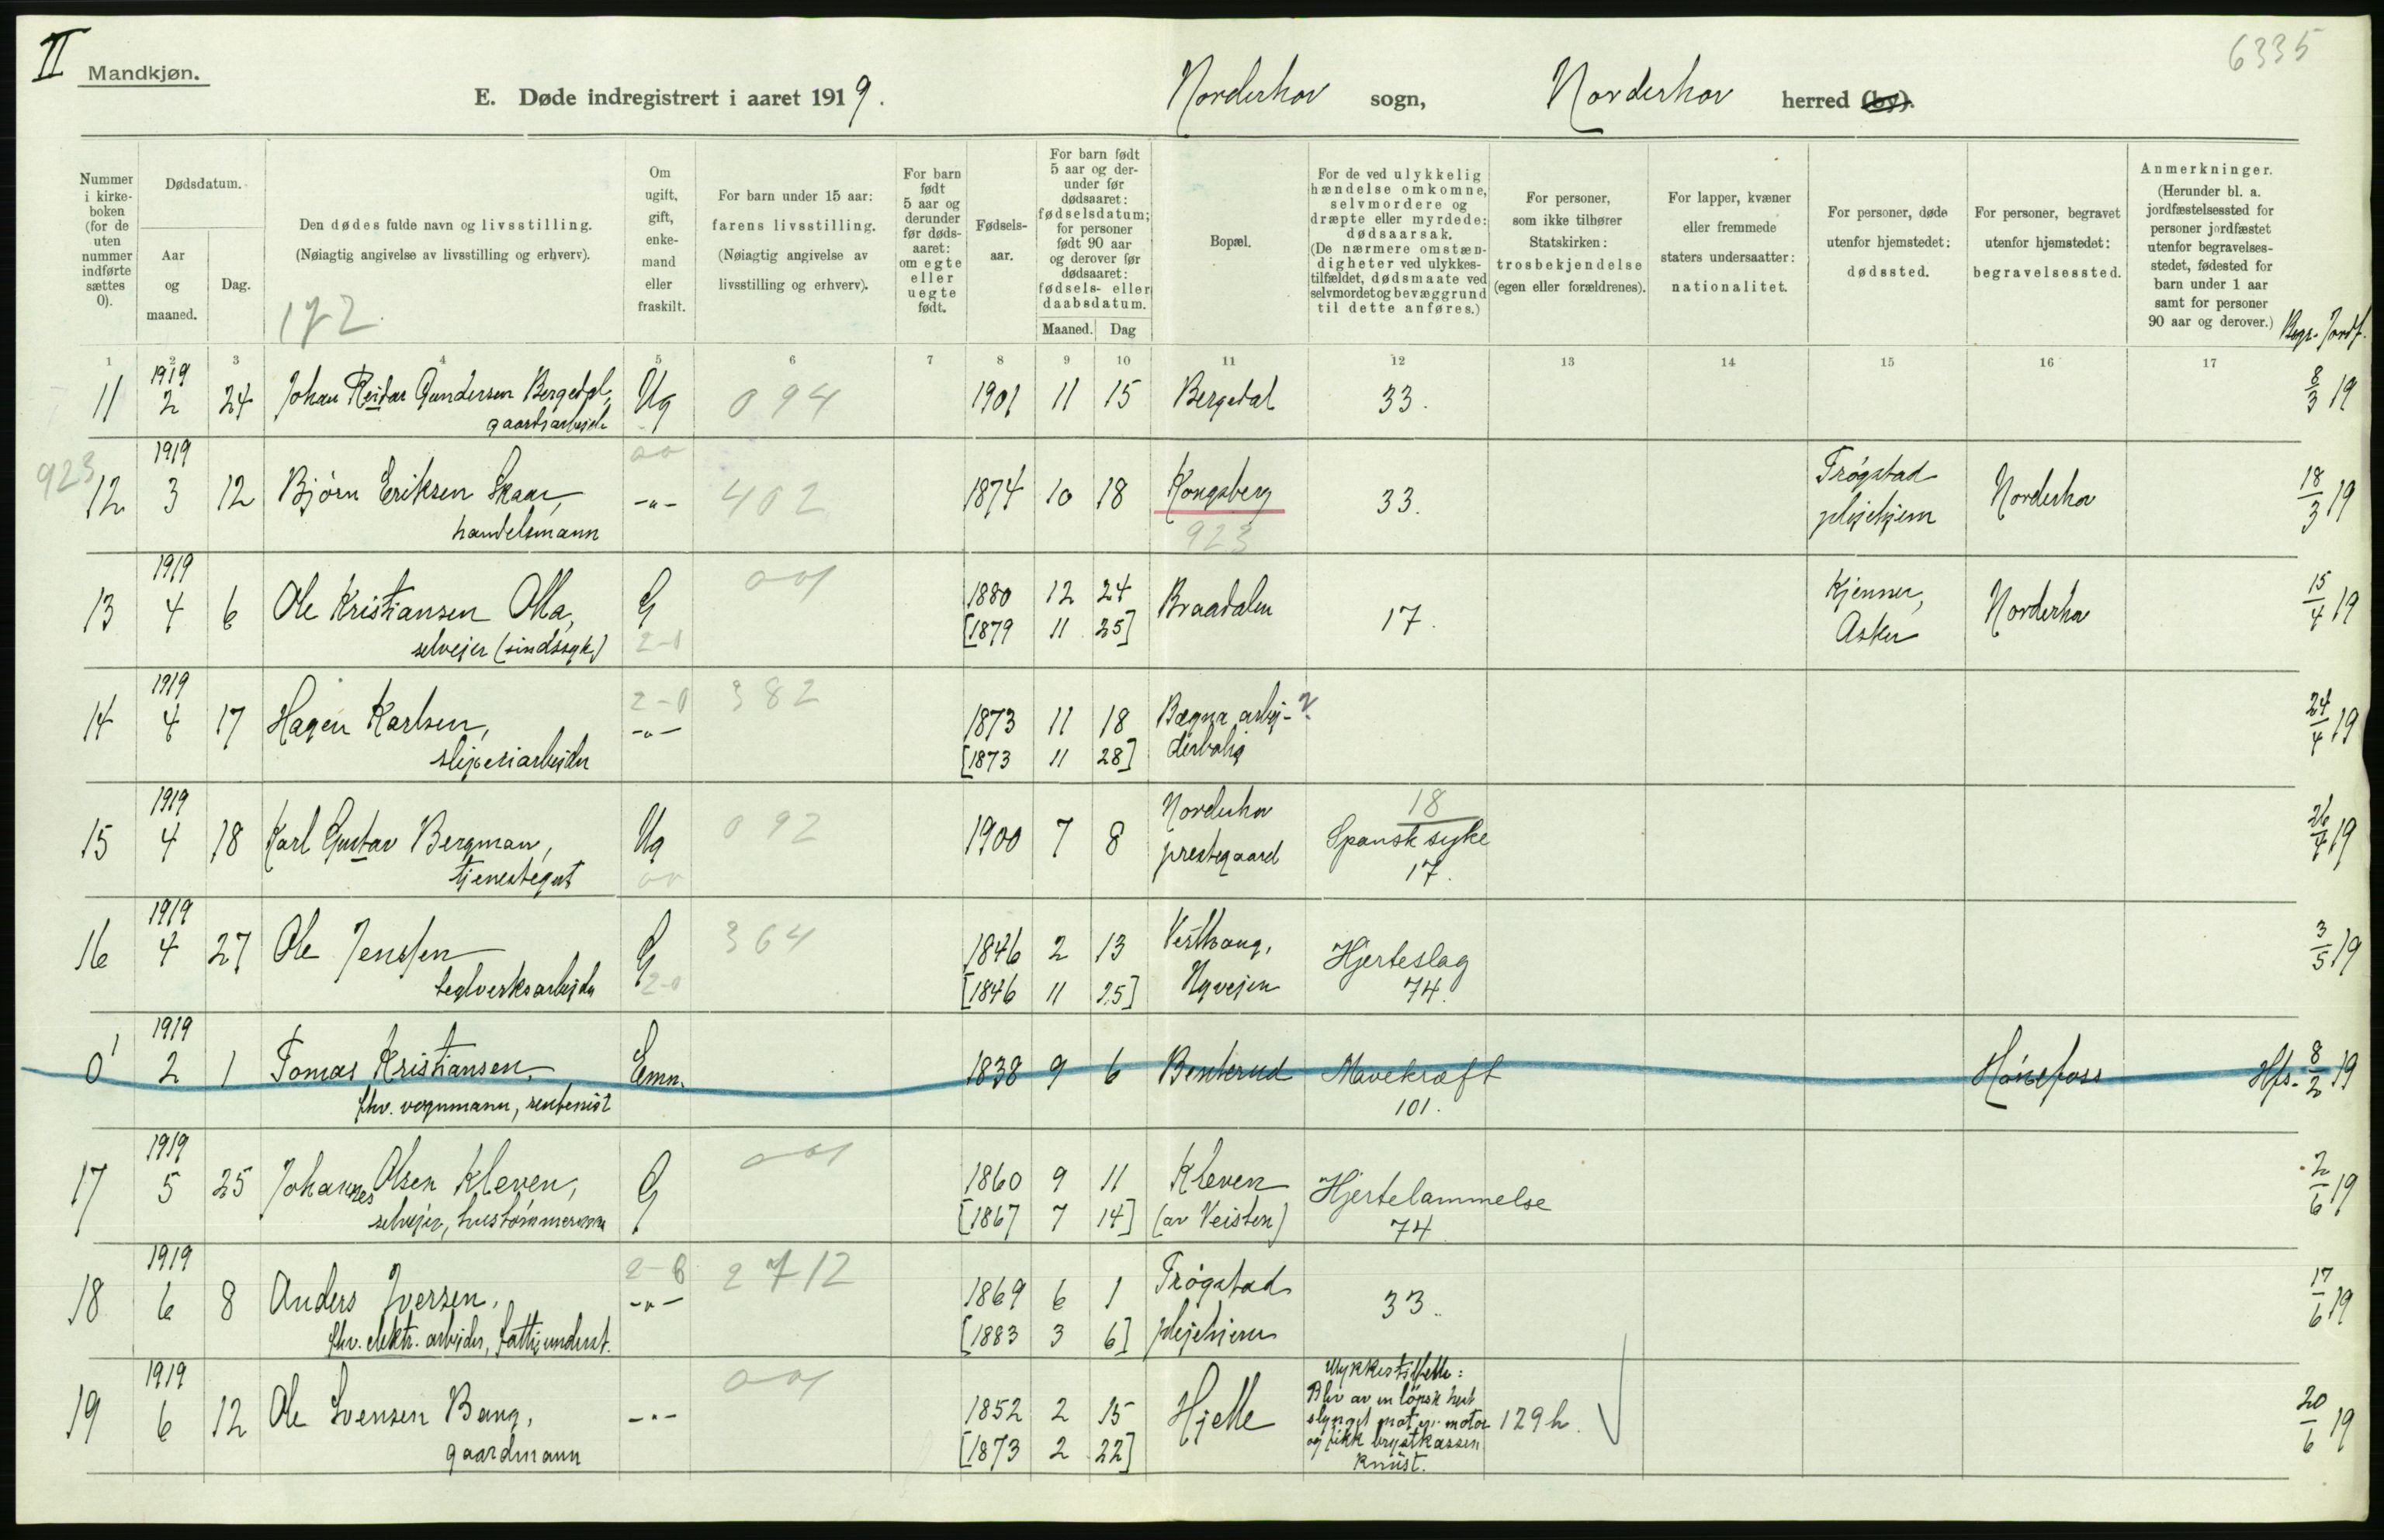 II
Mandkjøn.
6335
E. Døde indregistrert i aaret 1919.
Norderhov sogn, Norderhov herred (by).
Nummer i kirke-boken (for de uten nummer indførte sættes 0).
Dødsdatum.
Aar og maaned.
Dag.
Den dødes fulde navn og livsstilling.
(Nøiagtig angivelse av livsstilling og erhverv).
172
Om ugift, gift, enke-mand eller fraskilt.
For barn under 15 aar: farens livsstilling.
(Nøiagtig angivelse av livsstilling og erhverv).
For barn født 5 aar og derunder før døds-aaret: om egte eller uegte født.
Fødsels-aar.
For barn født 5 aar og der-under før dødsaaret: fødselsdatum; for personer født 90 aar og derover før dødsaaret: fødsels- eller daabsdatum.
Maaned. Dag
Bopæl.
For de ved ulykkelig hændelse omkomne, selvmordere og dræpte eller myrdede: dødsaarsak. (De nærmere omstæn-digheter ved ulykkes-tilfældet, dødsmaate ved selvmordet og bevæggrund til dette anføres.)
For personer, som ikke tilhører Statskirken: trosbekjendelse (egen eller forældrenes).
For lapper, kvæner eller fremmede staters undersaatter: nationalitet.
For personer, døde utenfor hjemstedet: dødssted.
For personer, begravet utenfor hjemstedet: begravelsessted.
Anmerkninger. (Herunder bl. a. jordfæstelsessted for personer jordfæstet utenfor begravelses-stedet, fødested for barn under 1 aar samt for personer 90 aar og derover.)
Begr. Jordf.
1 2 3 4 5 6 7 8 9 10 11 12 13 14 15 16 17
1919
11 2 24 Johan Reidar Gundersen Bergedal, Ug 094 1901 11 15 Bergedal 33. 8/3 19
gaardsarbeide
923 1919 00
12 3 12 Bjørn Eriksen Skaar, -"- 402 1874 10 18 Kongsberg 33. Frøgstad Norderhov 18/3 19
handelsmann 923 pleiehjem
1919 001
13 4 6 Ole Kristiansen G 1880 12 24 Braadalen 17. Kjenner, Norderhov 15/4 19
selveier (sindssyk) 2-0 [1879 11 25] Asker
1919 2-0 382
14 4 17 Hagen Karlsen, -"- 1873 11 18 Bægna arbej- 24/4 19
sliperiarbeider [1873 11 28] derbolig
1919 Norderhov 18
15 4 18 Karl Gustav Bergman, Ug 092 1900 7 8 prestegaard Spansk syke 26/4 19
tjenestegut 00 17.
1919
16 4 27 Ole Jenssen G 364 1846 2 13 Vesthaug, Hjerteslag 3/5 19
teglverksarbeider 2-0 [1846 11 25] Nyveien 74.
1919
0 1 2 1 Tomas Kristiansen, Emn. 1838 9 6 Benterud Mavekræft Hønefoss Hfs. 8/2 19
fhv. vognmann, rentenist 101.
1919 001
17 5 25 Johannes Olsen Kleven, G 1860 9 11 Kleven Hjertelammelse 2/6 19
selveier, hustømmermann [1867 7 14] (av Veisten) 74
1919 2-0 2712
18 6 8 Anders Iversen, -"- 1869 6 1 Frøgstad 33. 17/6 19
fhv. elektr. arbeider, fattigunderst. [1883 3 6] pleiehjem
1919 001 Ulykkestilfelle:
19 6 12 Ole Svensen Bang, -"- 1852 2 15 Hjelle Blev av en løpsk hest slynget mot en motor og fikk brystkassen knust. 129h. 20/6 19
gaardmann [1873 2 22]